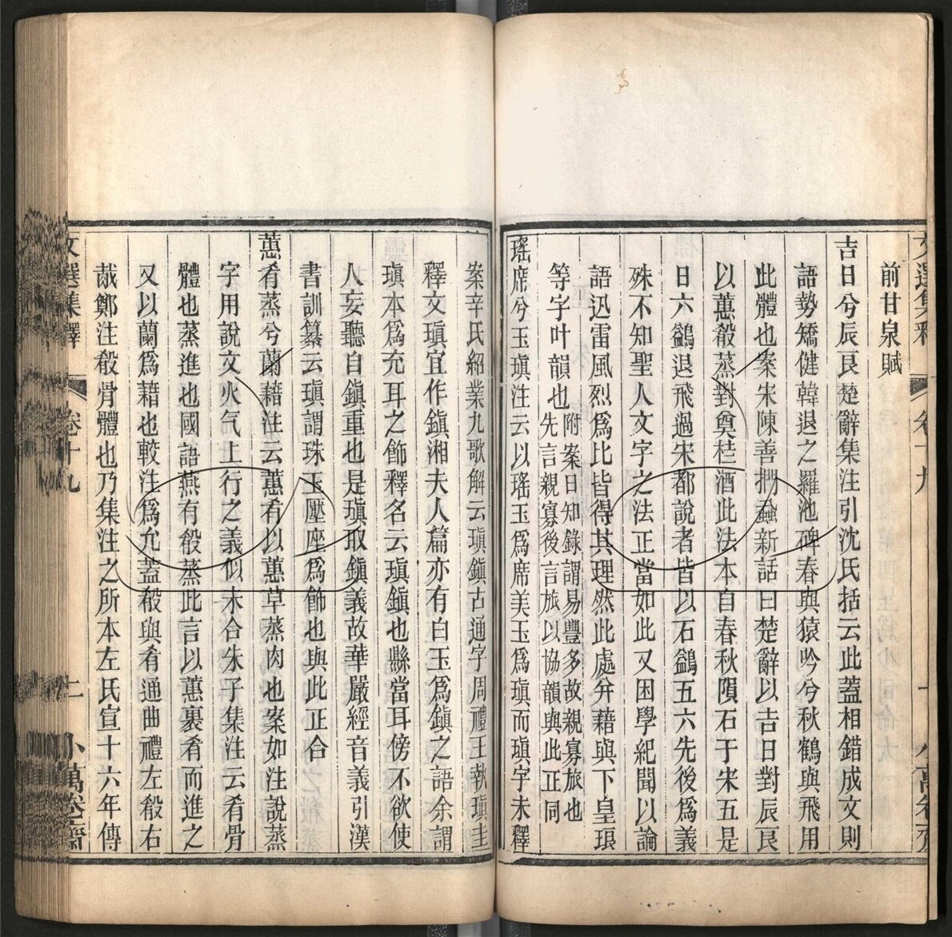 前甘泉賦
吉日兮辰良楚辭集注引沈氏括云此蓋相錯成文則
語勢矯健韓退之羅池碑春與猿吟兮秋鶴與飛用
此體也案宋陳善捫蝨新話曰楚辭以吉日對辰良
以蕙殽蒸對奠桂酒此法本自春秋隕石于宋五是
日六鷁退飛過宋都說者皆以石鷁五六先後爲義
殊不知聖人文字之法正當如此又困學紀聞以論
語迅雷風烈爲比皆得其理然此處分藉與下皇琅
等字叶韻也附案日知錄謂易豐多故親寡旅也
先言親寡後言旅以協韻與此正同
瑤席兮玉瑱注云以瑤玉爲席美玉爲瑱而瑱字未釋
案辛氏紹業九歌解云瑱鎭古通字周禮王執瑱圭
釋文瑱宜作鎭湘夫人篇亦有白玉爲鎭之語余謂
瑱本爲充耳之飾釋名云瑱鎭也縣當耳傍不欲使
人妄聽自鎭重也是瑱取鎭義故華嚴經音義引漢
書訓纂云瑱謂珠玉壓座爲飾也與此正合
蕙肴蒸兮蘭藉注云蕙肴以蕙草蒸肉也案如注說蒸
字用說文火气上行之義似未合朱子集注云肴骨
體也蒸進也國語燕有殽蒸此言以蕙裹肴而進之
又以蘭爲藉也較注爲允蓋殽與肴通曲禮左殽右
胾鄭注殽骨體也乃集注之所本左氏宣十六年傳
文選集釋
卷十九
二
小萬卷齋